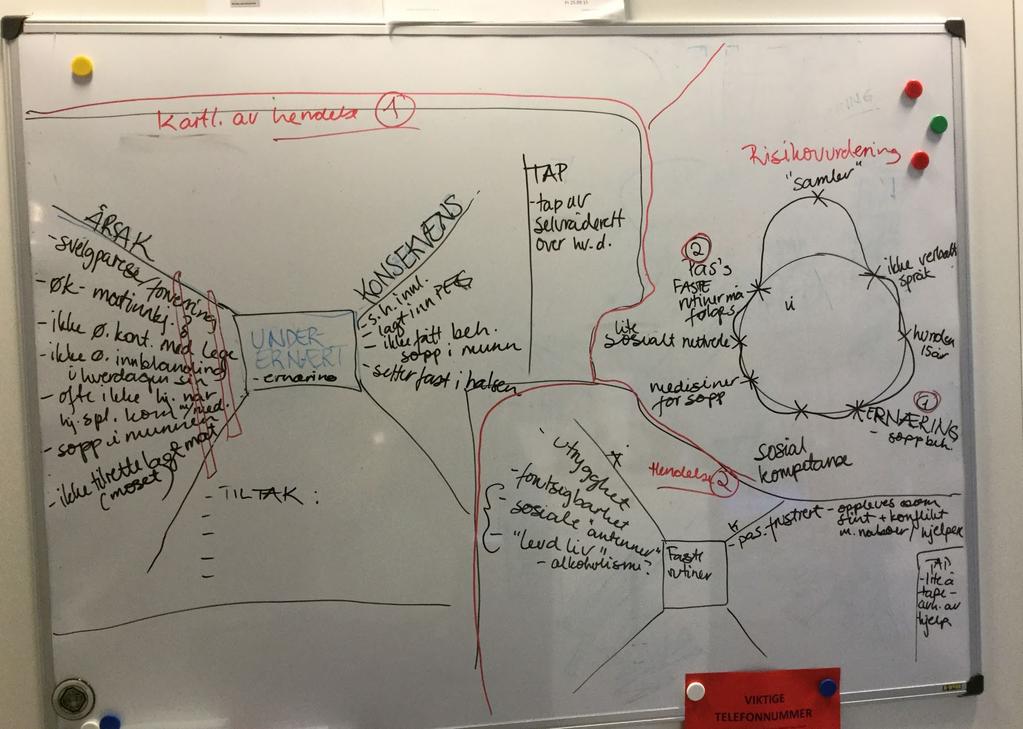 Fr 25.09.15
Kartl. av hendelse 1
ÅRSAK
- svelgparese/
- øk- matinnkj.
- ikke ø. kont. med lege
- ikke ø. innblanding
i hverdagen sin
- ofte ikke hj. når
hj.spl. kom m/med.
- sopp i munnen
- ikke tilrettelagt mat
(moset)
UNDER-
ERNÆRT
- ernæring
KONSEKVENS
- s.h. innl.
- lagt inn PEG
- ikke fått beh.
sopp i munn
- setter fast i halsen
TAP
- tap av
selvråderett
over hv.d.
- TILTAK:
-
-
-
-
Risikovurdering
"samler"
ikke verbalt
språk
hunden
15år
1
ERNÆRING
- sopp beh.
sosial
kompetanse
medisiner
for sopp
lite
sosialt nettverk
2
- Pas's
FASTE
rutiner må
følges
Hendelse 2
Å
utrygghet
- forutsigbarhet
- sosiale "antenner"
- "levd liv"
- alkoholisme?
Faste
rutiner
K
- pas. frustrert - oppleves som
sint + konflikt
m. naboer/hjelper
TAP
- lite å
tape -
avh. av
hjelp
VIKTIGE
TELEFONNUMMER